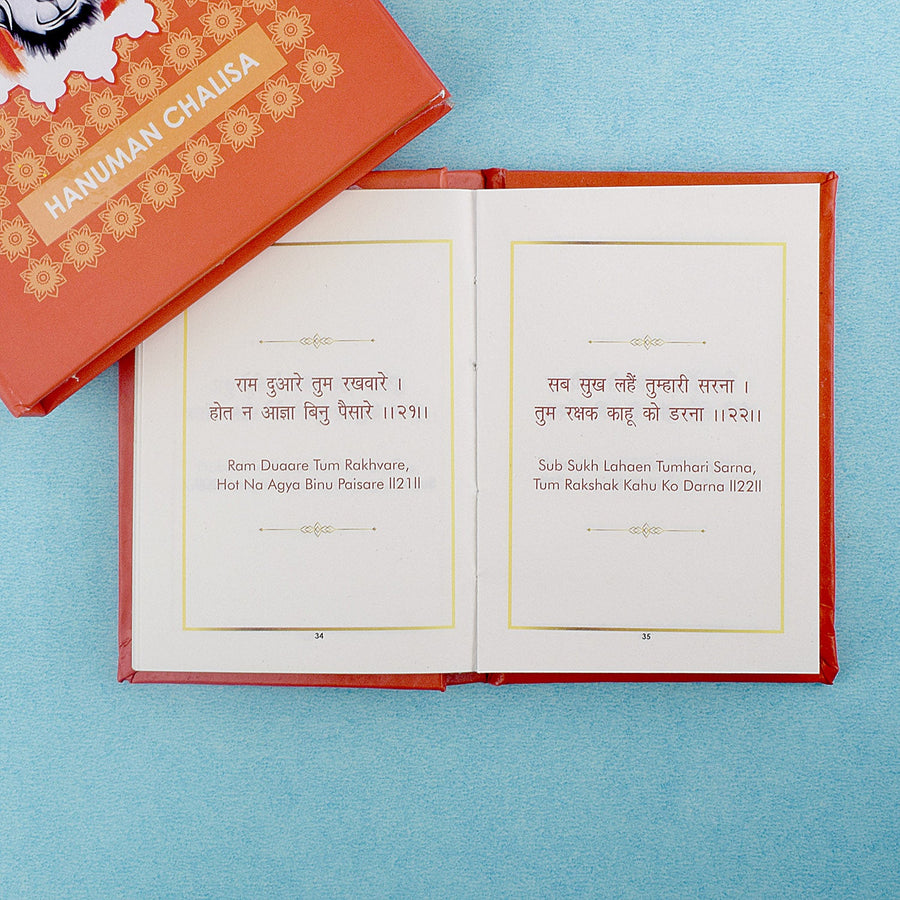 HANUMAN CHALISA
राम दुआरे तुम रखवारे ।
होत न आज्ञा बिनु पैसारे ।।२१।।
Ram Duaare Tum Rakhvare,
Hot Na Agya Binu Paisare II21II
34
सब सुख लहैं तुम्हारी सरना ।
तुम रक्षक काहू को डरना ।।२२।।
Sub Sukh Lahaen Tumhari Sarna,
Tum Rakshak Kahu Ko Darna II22II
35